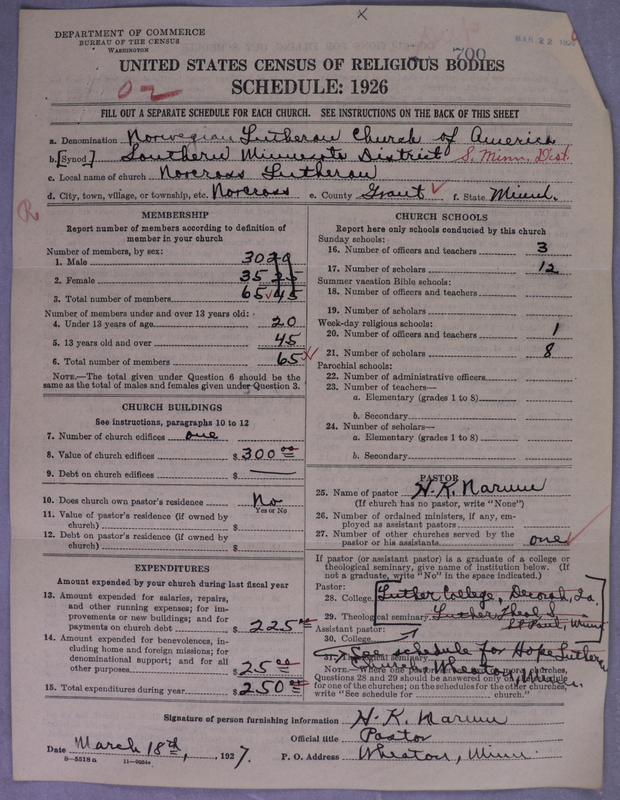 DEPARTMENT OF COMMERCE
BUREAU OF THE CENSUS
WASHINGTON
700
MAR 22 192
UNITED STATES CENSUS OF RELIGIOUS BODIES
SCHEDULE: 1926
FILL OUT A SEPARATE SCHEDULE FOR EACH CHURCH. SEE INSTRUCTIONS ON THE BACK OF THIS SHEET
a. Denomination Norwegian Lutheran Church of America
b. [Synod] Southern Minnesota District S. Minn. Dist.
c. Local name of church Norcross Lutheran
d. City, town, village, or township, etc. Norcross e. County Grant f. State Minn.
R
MEMBERSHIP
Report number of members according to definition of member in your church
Number of members, by sex:
1. Male 30
2. Female 35 25
3. Total number of members 65 45
Number of members under and over 13 years old:
4. Under 13 years of age 20
5. 13 years old and over 45
6. Total number of members 65
NOTE.—The total given under Question 6 should be the
same as the total of males and females given under Question 3.
CHURCH BUILDINGS
See instructions, paragraphs 10 to 12
7. Number of church edifices one
8. Value of church edifices $ 300 00
9. Debt on church edifices $ —
10. Does church own pastor's residence No
Yes or No
11. Value of pastor's residence (if owned by
church) $
12. Debt on pastor's residence (if owned by
church) $
EXPENDITURES
Amount expended by your church during last fiscal year
13. Amount expended for salaries, repairs,
and other running expenses; for im-
provements or new buildings; and for
payments on church debt $ 225 00
14. Amount expended for benevolences, in-
cluding home and foreign missions; for
denominational support; and for all
other purposes $ 25 00
15. Total expenditures during year $ 250 00
CHURCH SCHOOLS
Report here only schools conducted by this church
Sunday schools:
16. Number of officers and teachers 3
17. Number of scholars 12
Summer vacation Bible schools:
18. Number of officers and teachers
19. Number of scholars
Week-day religious schools:
20. Number of officers and teachers 1
21. Number of scholars 8
Parochial schools:
22. Number of administrative officers
23. Number of teachers—
a. Elementary (grades 1 to 8)
b. Secondary
24. Number of scholars—
a. Elementary (grades 1 to 8)
b. Secondary
PASTOR
25. Name of pastor H. K.
(If church has no pastor, write "None")
26. Number of ordained ministers, if any, em-
ployed as assistant pastors
27. Number of other churches served by the
pastor or his assistants one
If pastor (or assistant pastor) is a graduate of a college or
theological seminary, give name of institution below. (If
not a graduate, write "No" in the space indicated.)
Pastor:
28. College Luther College, Decorah, Ia.
29. Theological seminary Luther Theol. S
St Paul, Minn
Assistant pastor:
30. College
See schedule for Hope Lutheran
31. Theological seminary
Church, Wheaton, Minn.
NOTE.—Where one pastor more churches,
Questions 28 and 29 should be answered only on the schedule
for one of the churches; on the schedules for the other churches,
write "See schedule for church."
Signature of person furnishing information H. K.
Official title Pastor
Date March 18th, 1927. P. O. Address Wheaton, Minn.
8—5518 a 11—9034